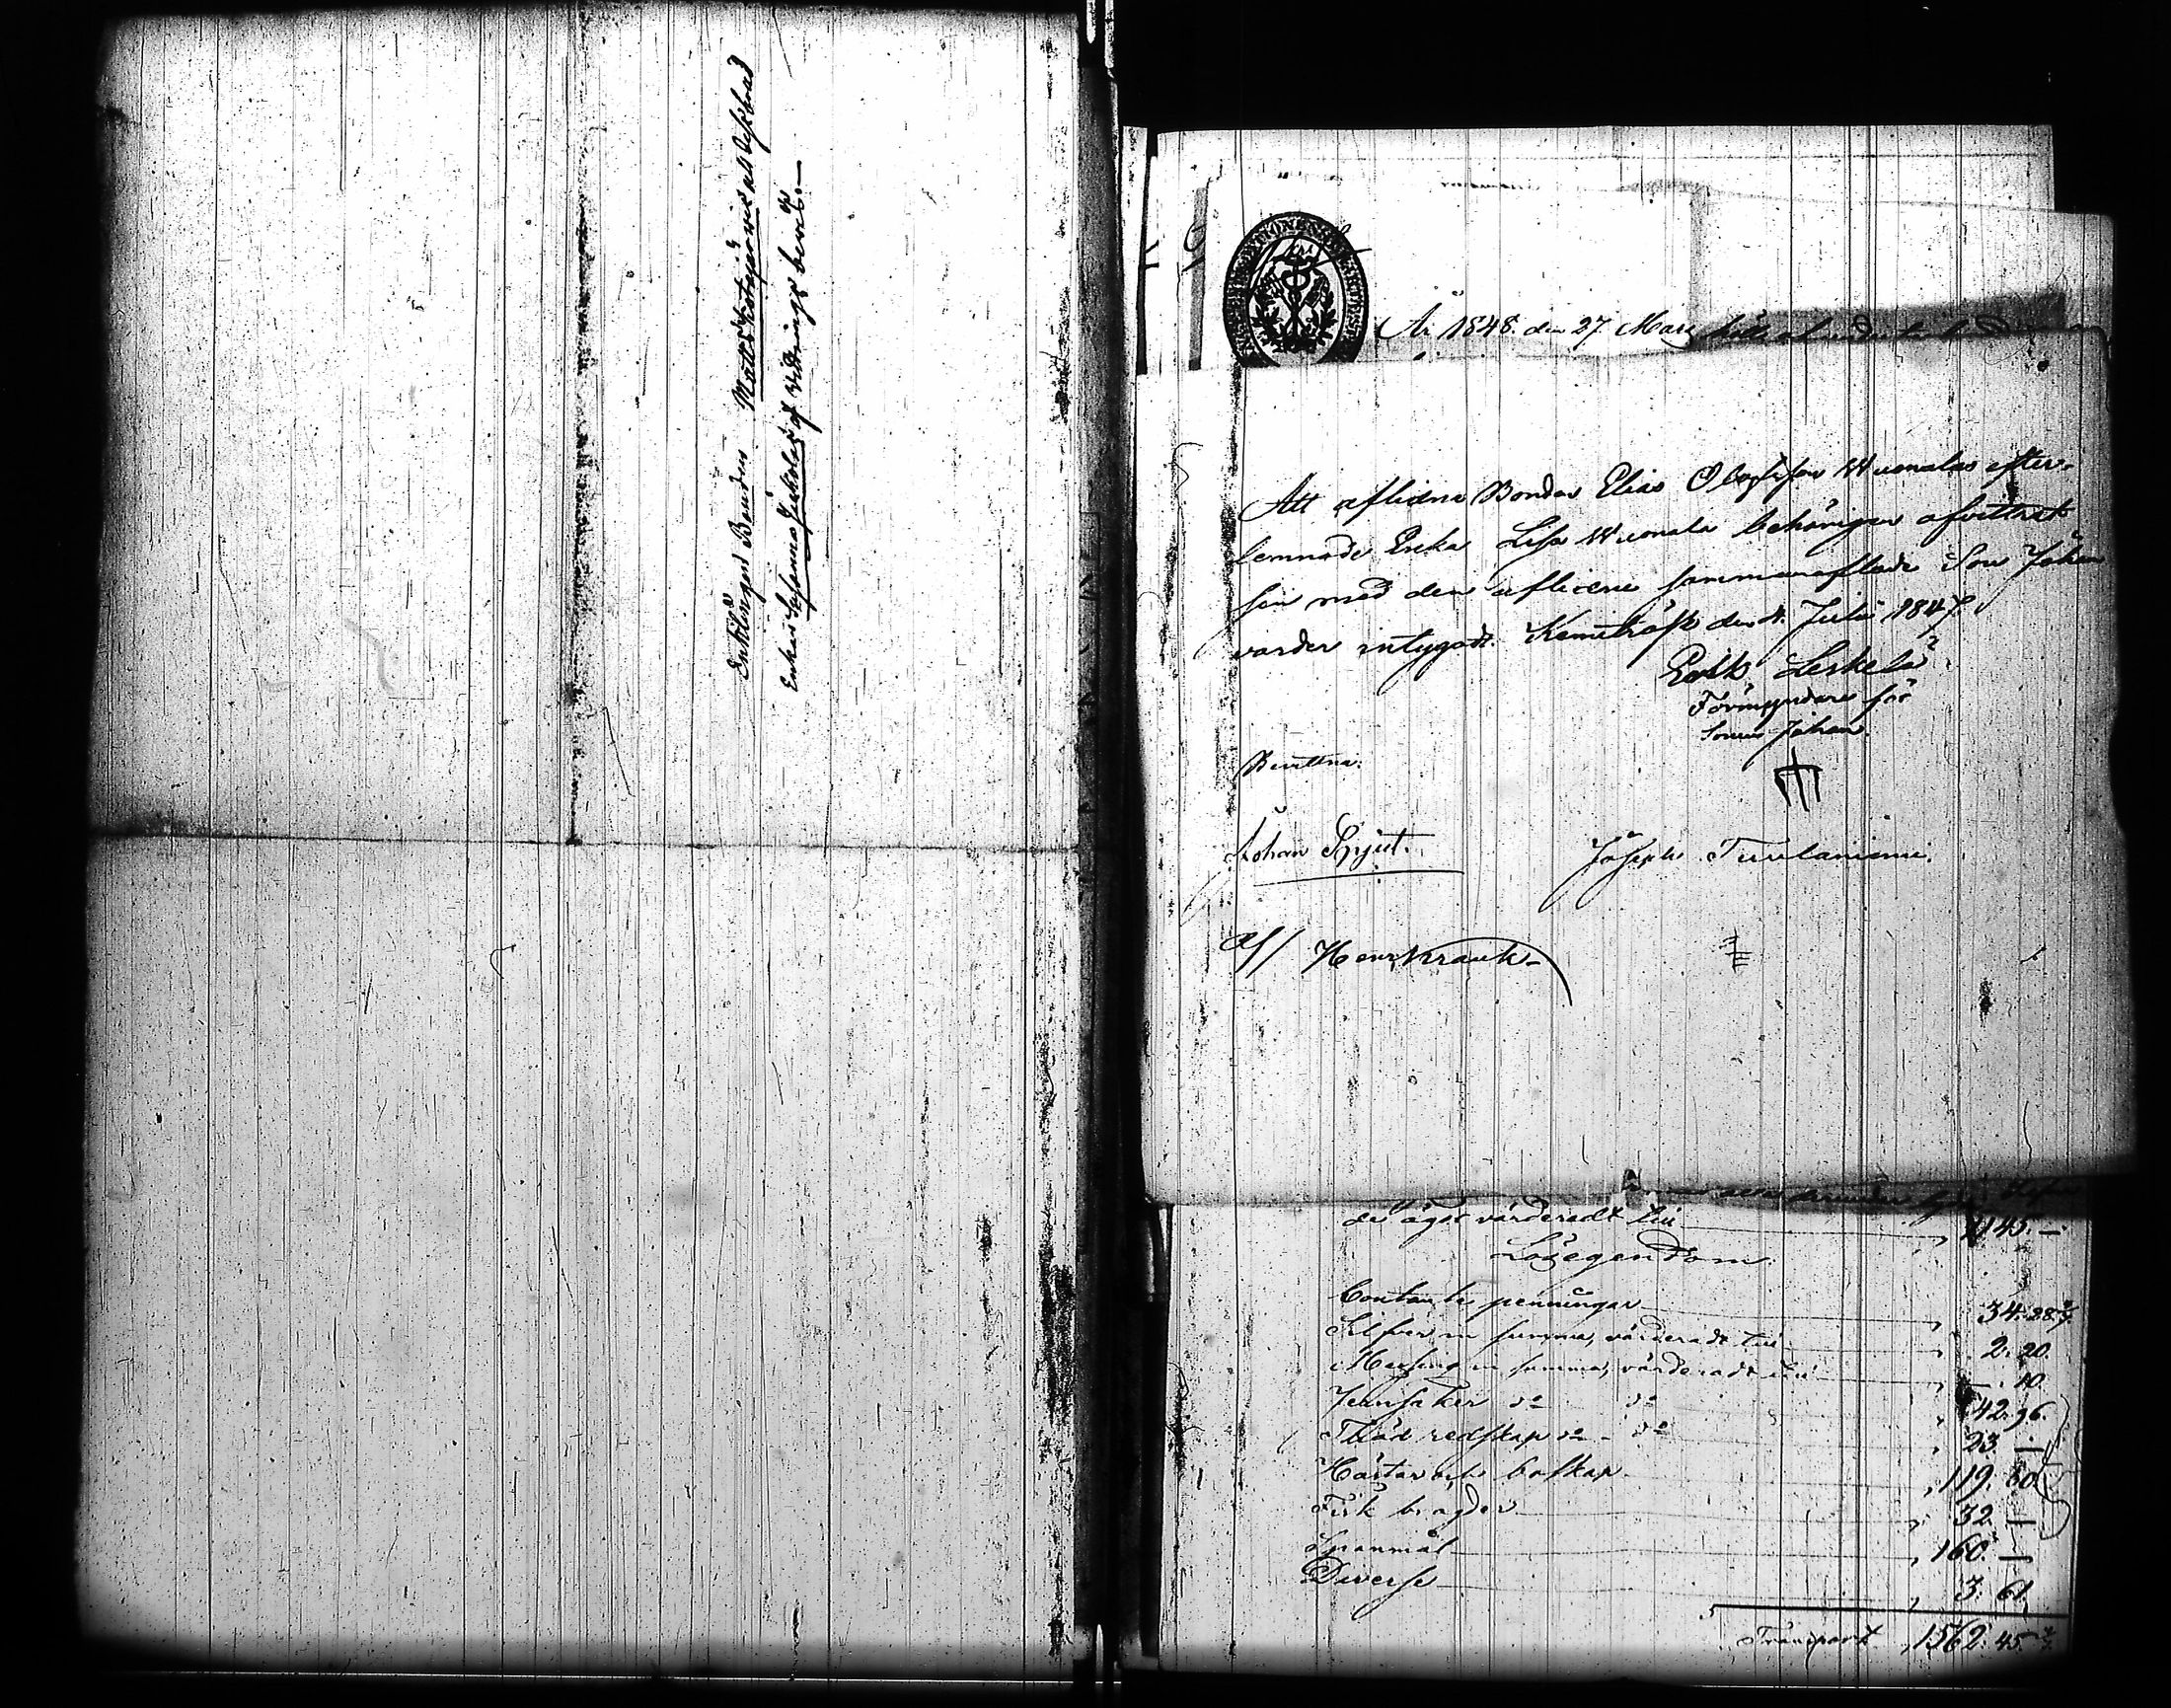 Enklingen Bonden Matts Ketojärvis
Enkas Susanna Jukolas afvittrings bevis.—
År 1848. den 27. Mars
Att aflidna Bonden Elias Olofsson Wuonalas efter-
lemnade Enka Lisa Wuonala behörigen afvittrat
sin med den aflidne sammanaflade Son Johan
varder intygadt. Kemiträsk den Julii 1847.
Erik Leskelä
Förmyndare för
Sonen Johan.
Bevittna:
Johan Spjut. Joseph Tuulaniemi.
Henr Krank
der ägor värderadt till 1145. —
Lösegendom.
Contante penningar 34. 28 4/7
Silfver in summa, värderadt till 2. 20.
Messing in summa, värderadt till —. 10.
Jernsaker do do 42. 96.
Träd redskap do - do 23. —
Hästar och boskap 119. 30
Fisk brägder 32. —
Spanmål 160. —
Diverse 3. 61.
Transport 1562. 45 4/7